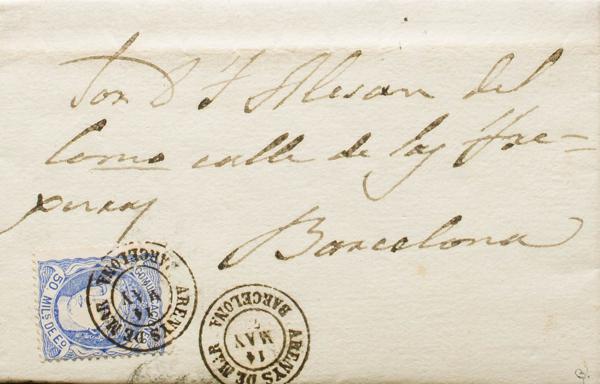 Sor D. J Alesan del
Comº calle de las
Barcelona
50 MILS. DE Eº
COMUNICAC
ARENYS DE MAR
BARCELONA
14
MAY
ARENYS DE MAR
BARCELONA
14
MAY